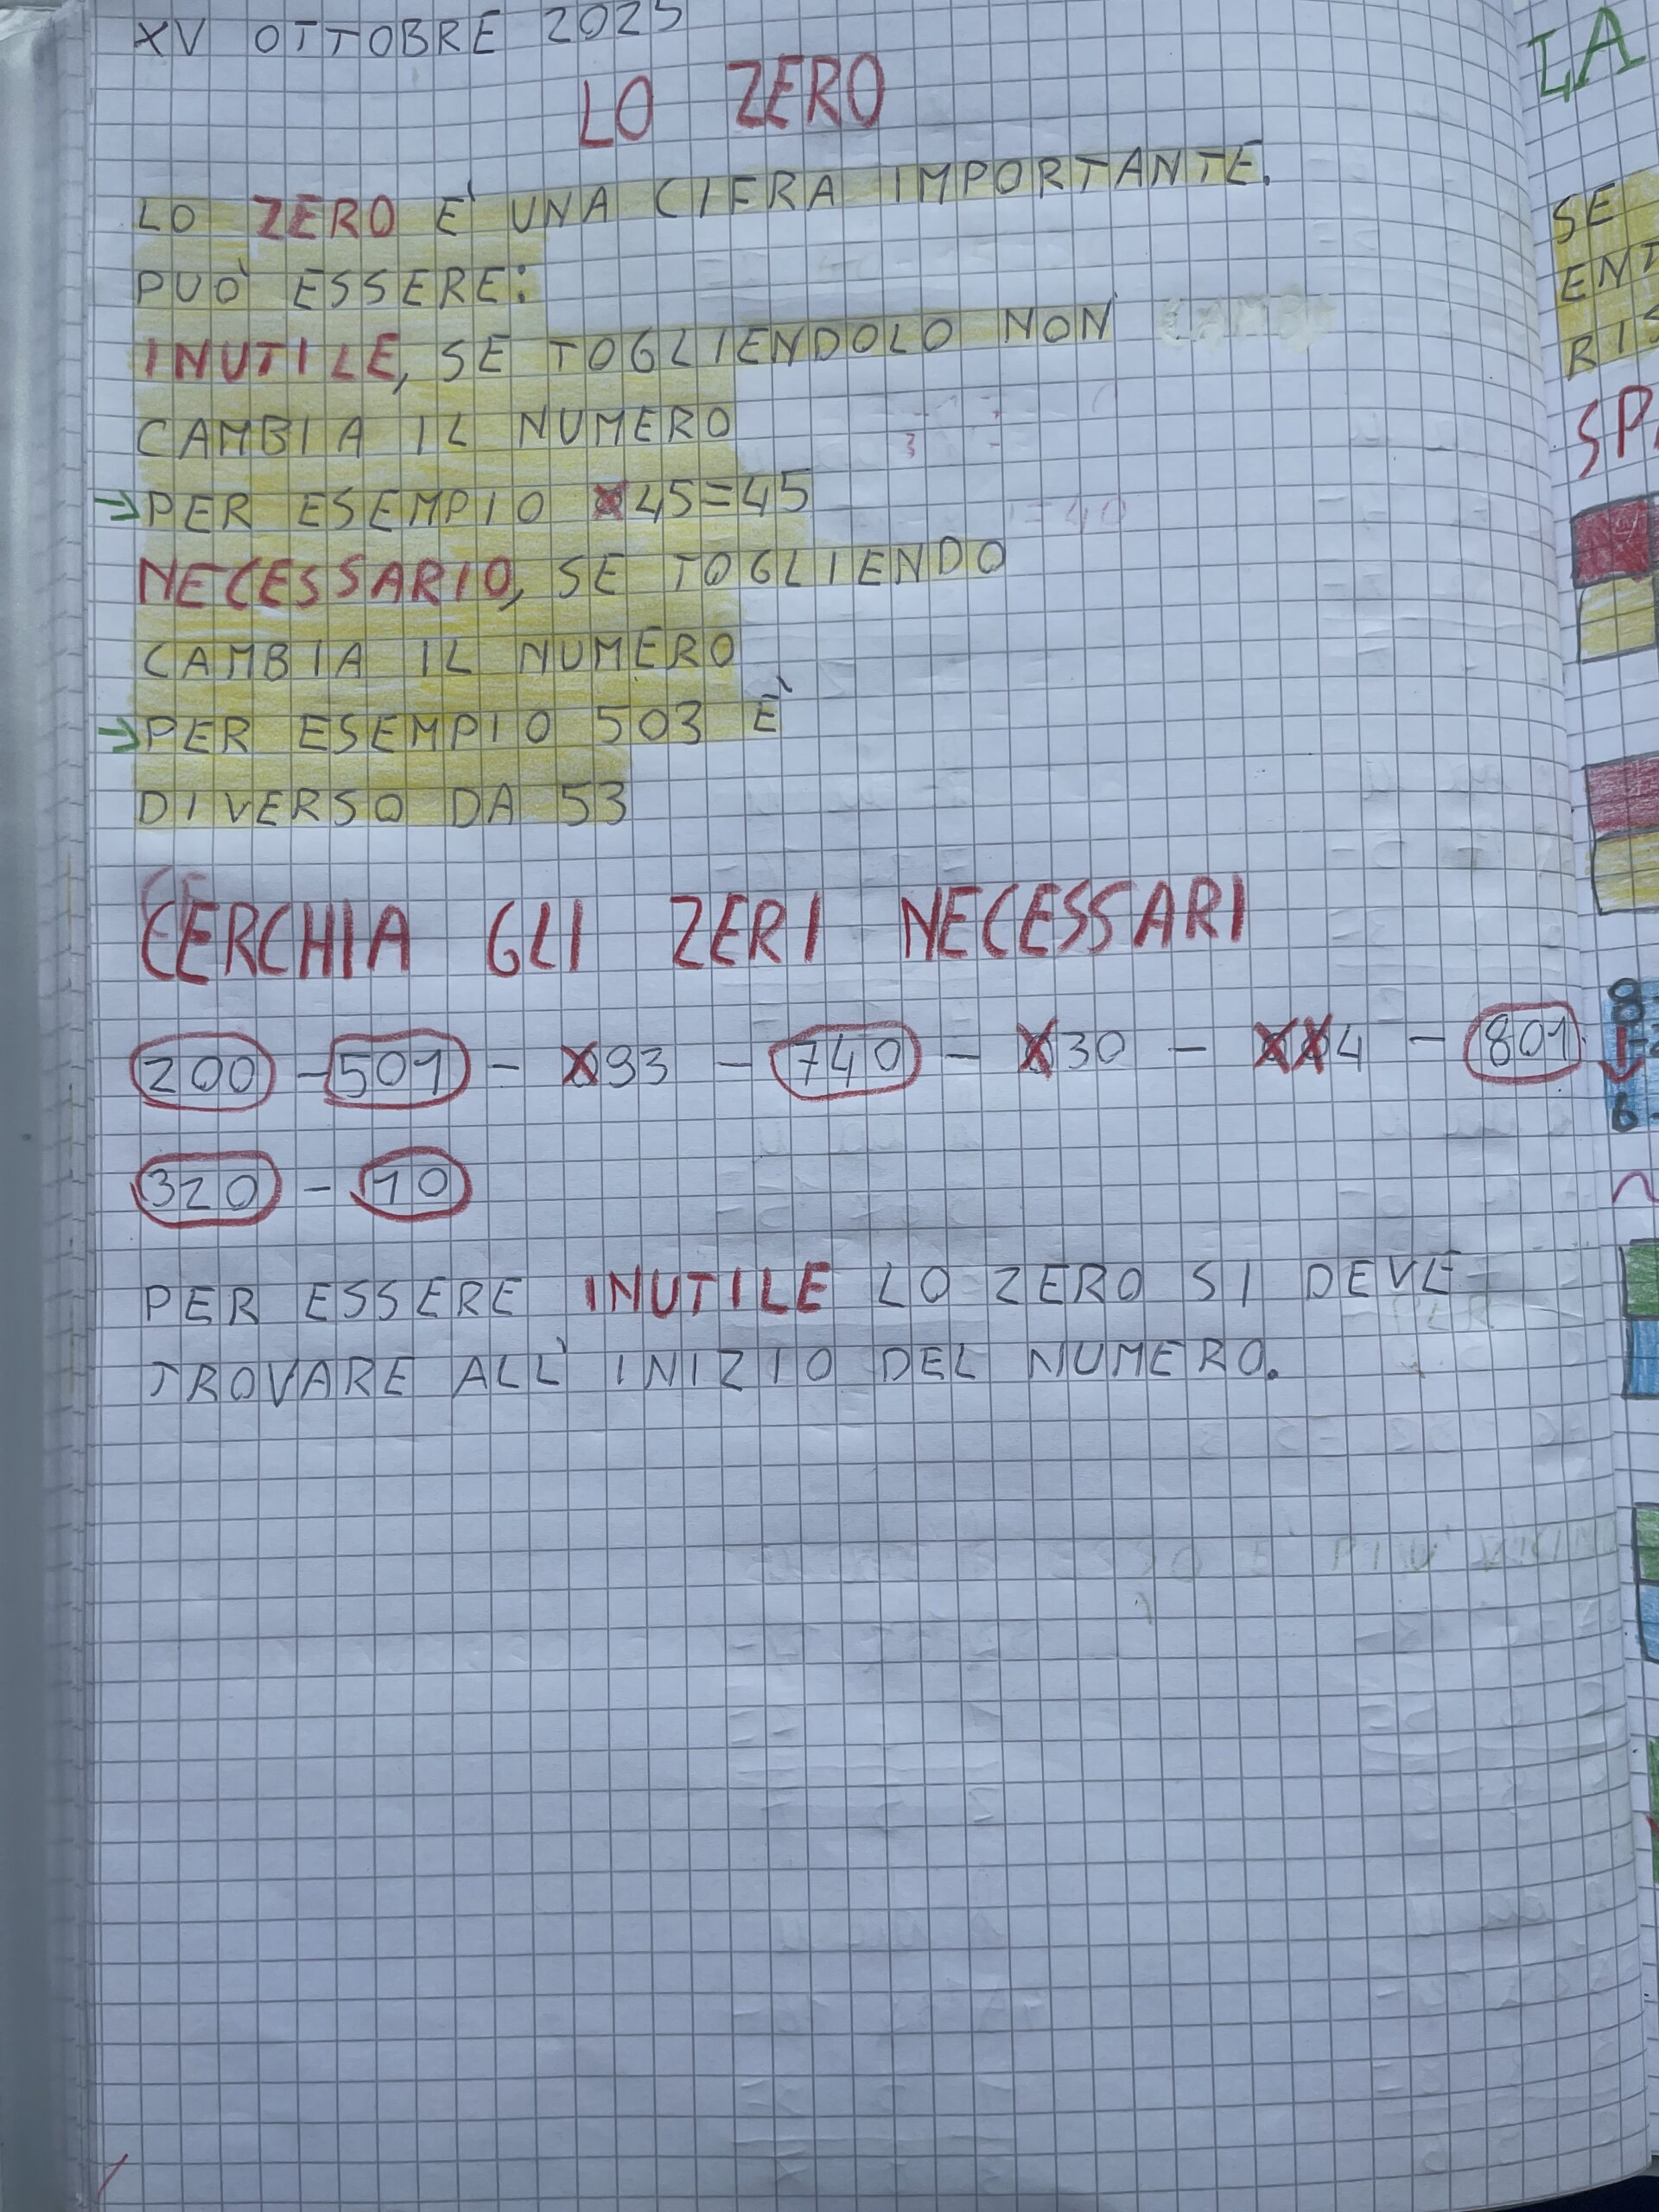 XV OTTOBRE 2025
LO ZERO
LO ZERO È UNA CIFRA IMPORTANTE.
PUÒ ESSERE:
INUTILE, SE TOGLIENDOLO NON
CAMBIA IL NUMERO
→PER ESEMPIO 045=45
NECESSARIO, SE TOGLIENDO
CAMBIA IL NUMERO
→PER ESEMPIO 503 È
DIVERSO DA 53
CERCHIA GLI ZERI NECESSARI
200 - 501 - 093 - 740 - 030 - 004 - 801
320 - 10
PER ESSERE INUTILE LO ZERO SI DEVE
TROVARE ALL'INIZIO DEL NUMERO.
LA
SE
ENT
RIS
SPA
8
6